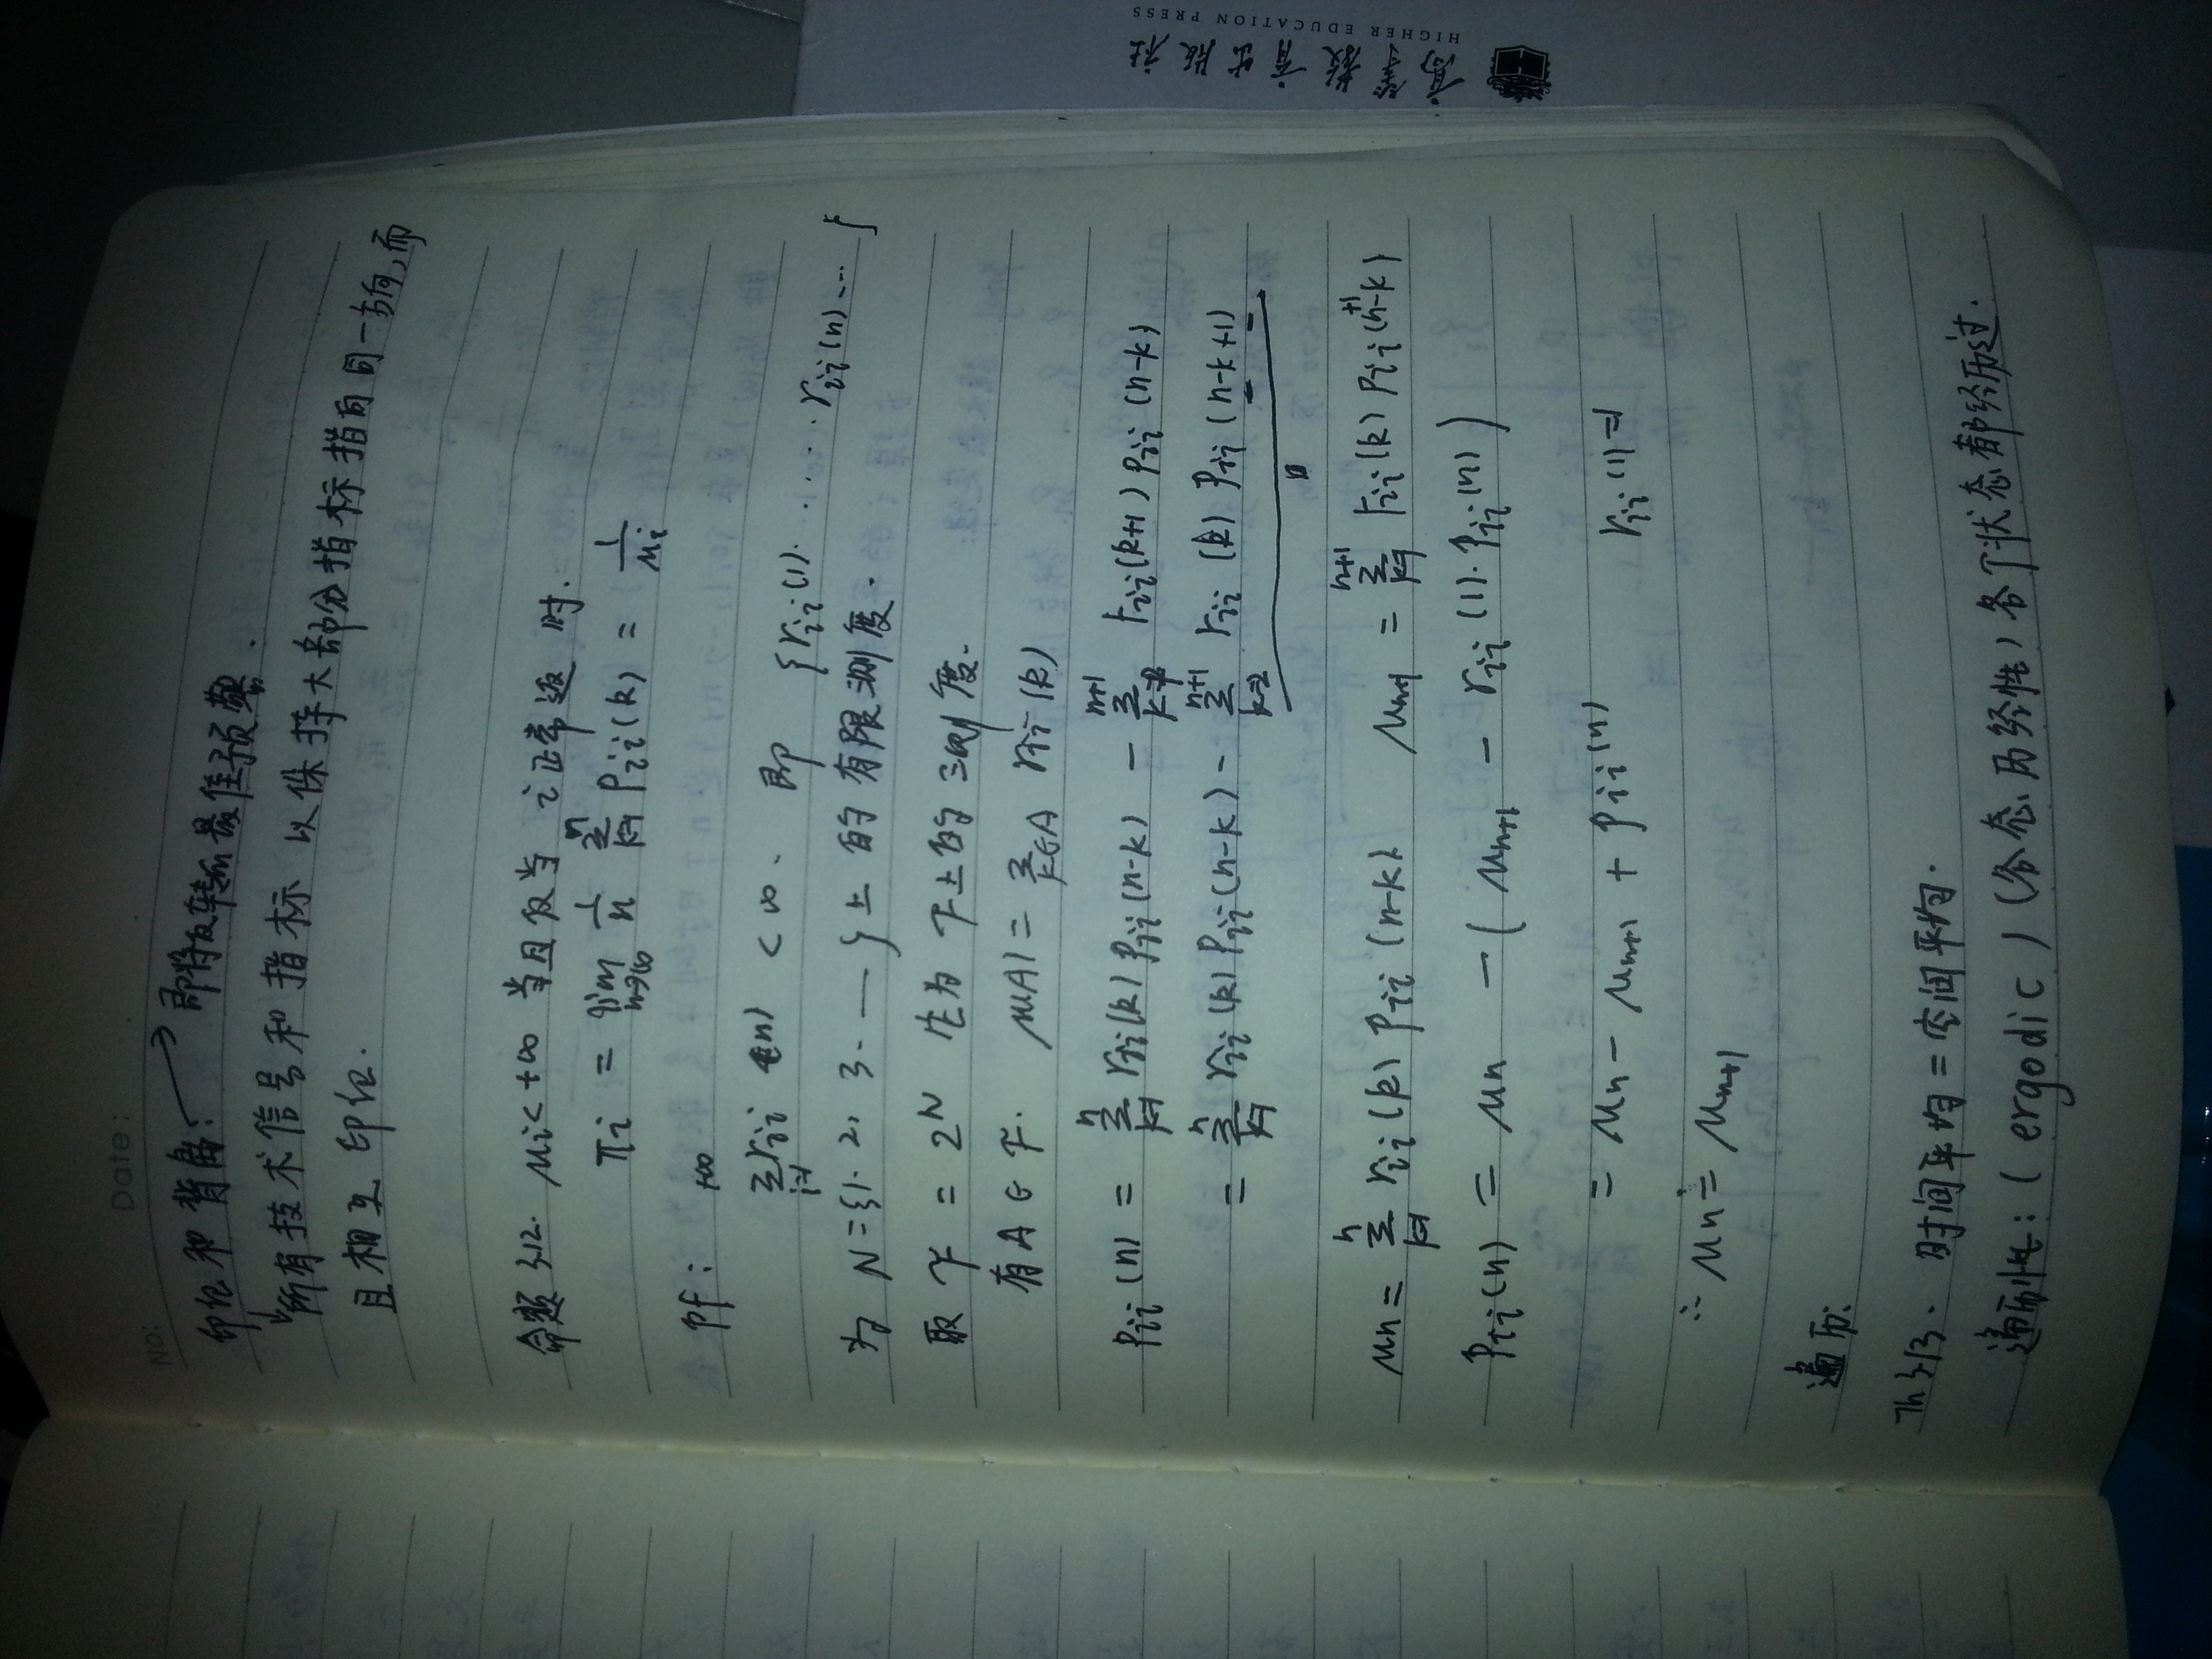 No:
Date:
印记和背离: → 即将反转的最佳预警.
↓所有技术信号和指标 以保持大部分指标指向同一方向,而
且相互印记.
命题3.12. μi < +∞ 当且仅当 i正常返 时.
πi = lim n→∞ 1/n Σ k=1 n Pii(k) = 1/μi
pf:
+∞ Σ i=1 rii(n) < ∞. 即 {rii(1). .... rii(n)... }
为 N={1. 2, 3. — }上的有限测度.
取 F = 2^N 它为 F上的测度.
有A∈F. μ(A) = Σ k∈A rii(k)
Pii(n) = Σ k=1 n rii(k) Pii(n-k) - Σ n+1 rii(k+1) Pii(n-k)
= Σ k=1 n rii(k) Pii(n-k) - Σ k=2 n+1 rii(k) Pii(n-k+1)
μn = Σ k=1 n rii(k) Pii(n-k) μn+1 = Σ k=1 n+1 rii(k) Pii(n+1-k)
Pii(n) = μn -( μn+1 - rii(1). Pii(n) )
= μn - μn+1 + Pii(n) rii(1)=1
∴ μn = μn+1
遍历:
Th 3.13. 时间平均=空间平均.
遍历性: (ergodic) (各态历经性) 各个状态都经历过.
高等教育出版社
HIGHER EDUCATION PRESS